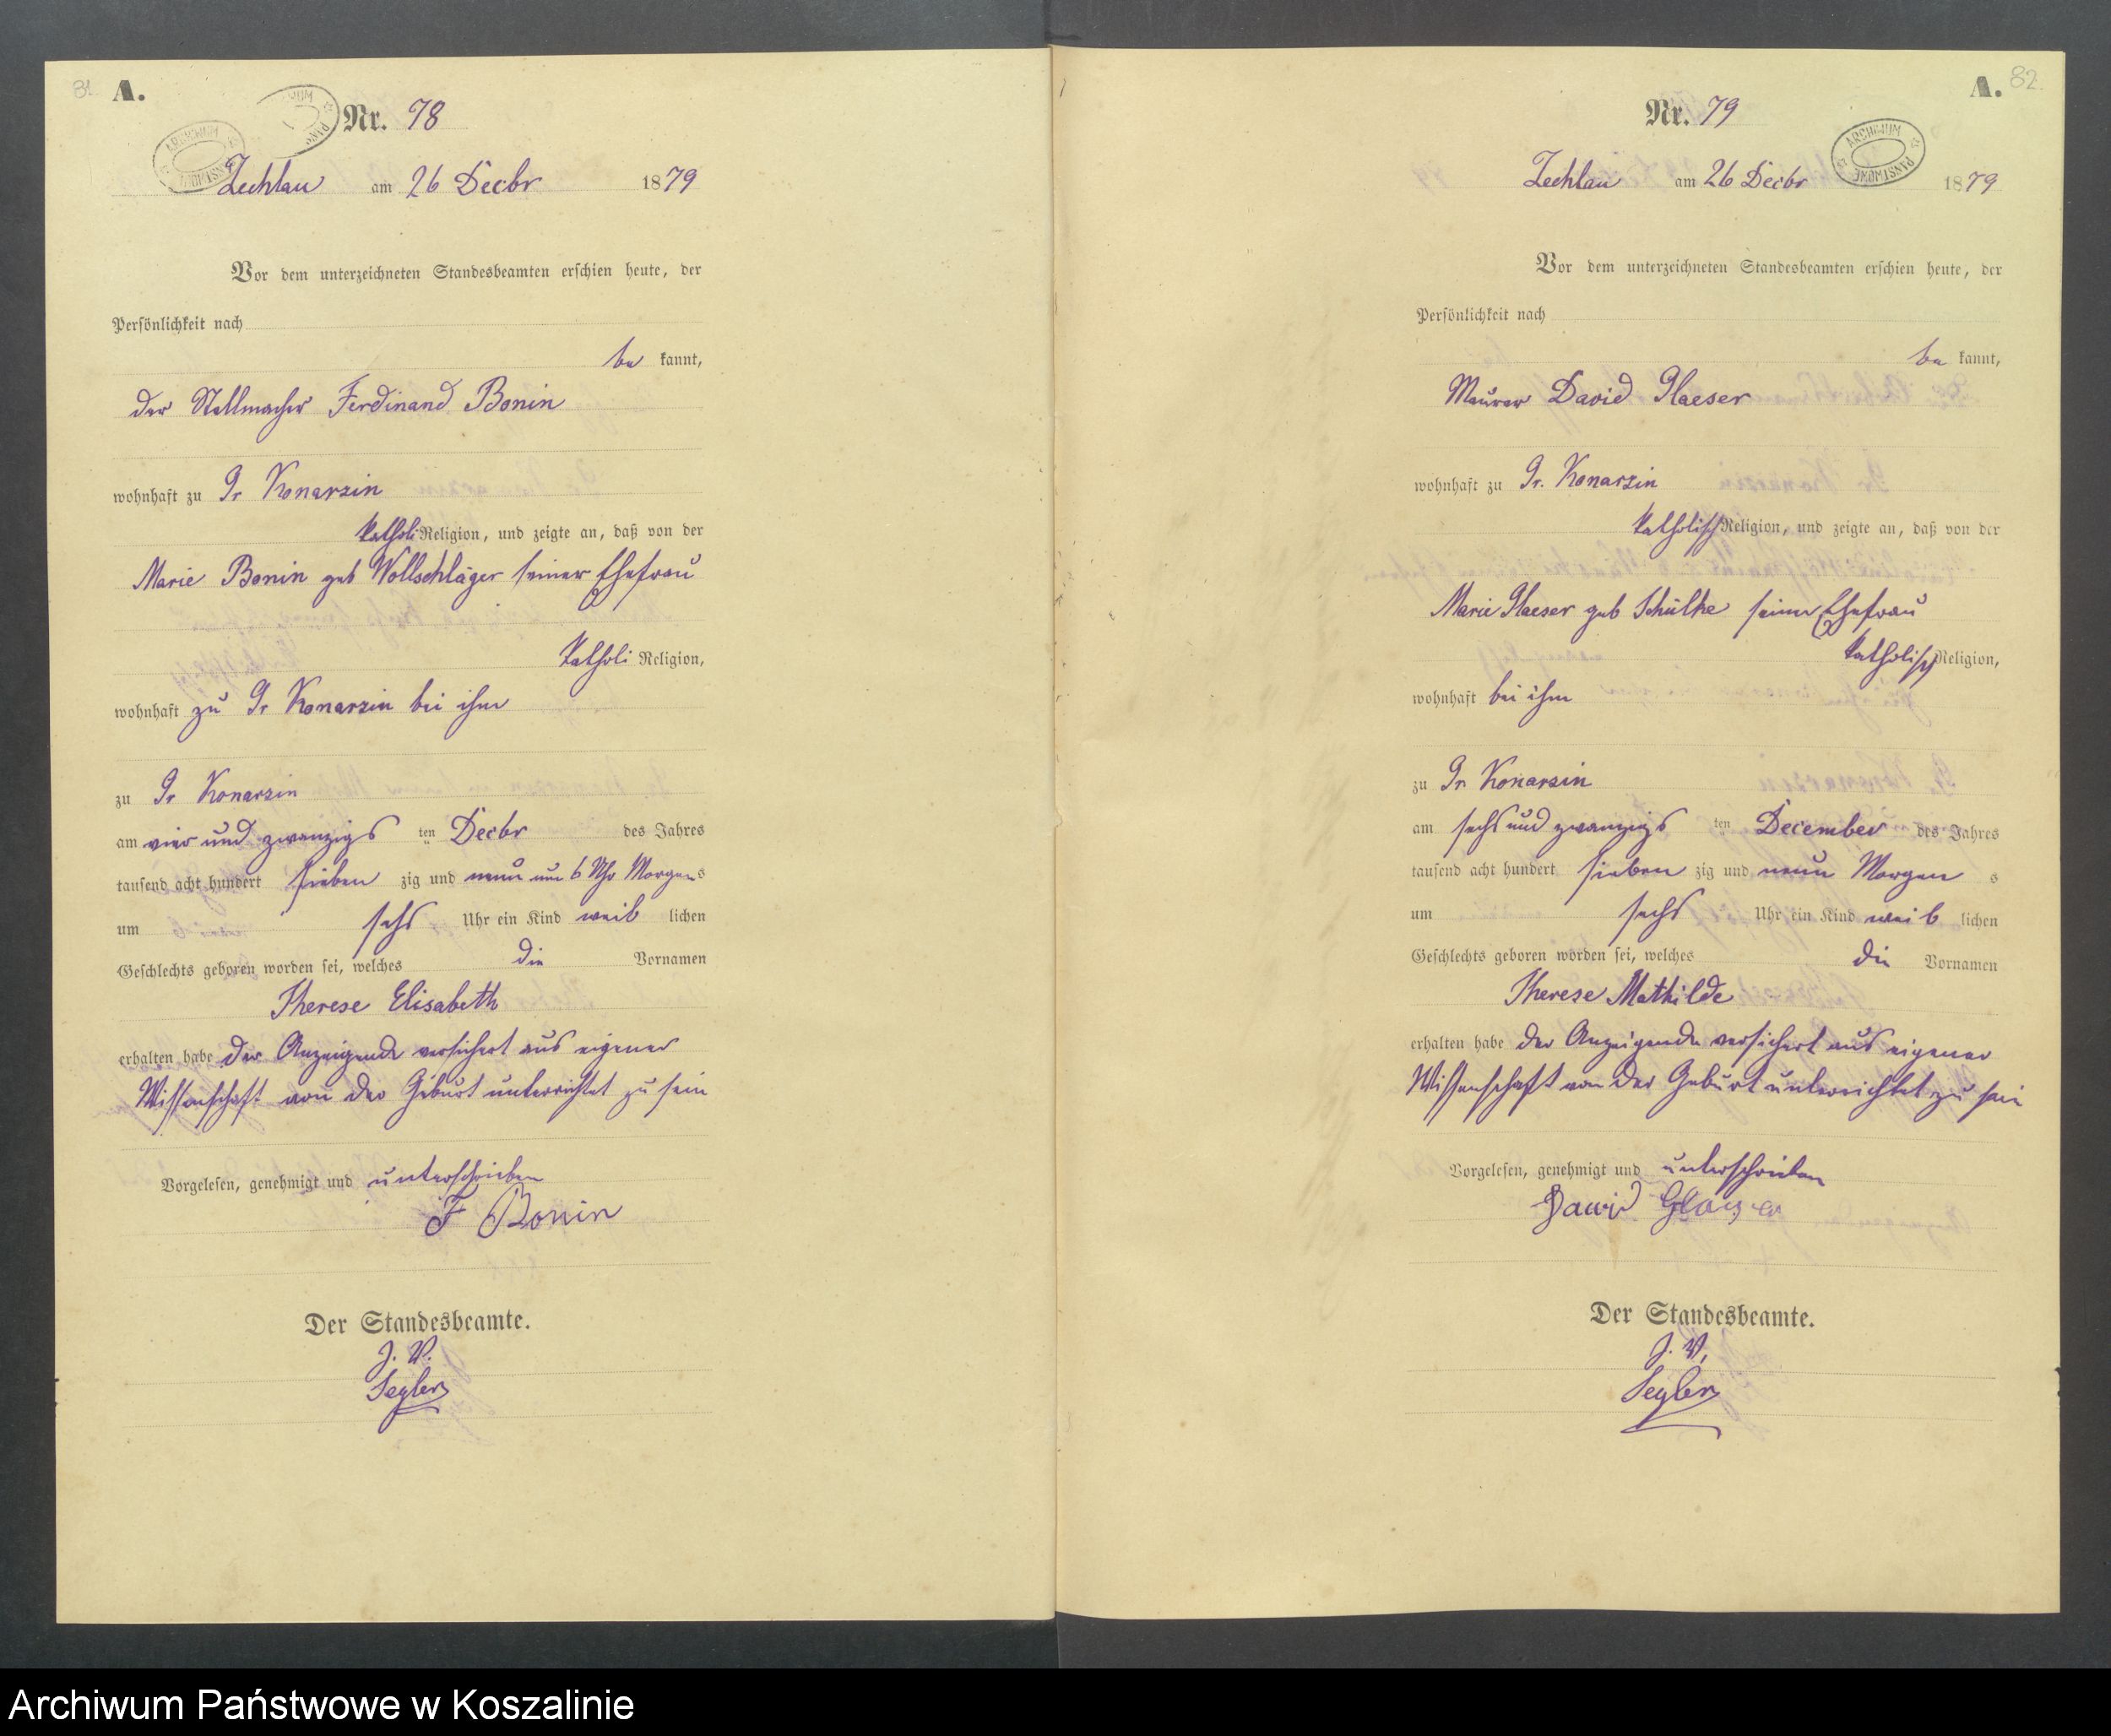 81
A.
Nr. 78
ARCHIWUM PAŃSTWOWE
Zechlau am 26 Decbr 1879
Vor dem unterzeichneten Standesbeamten erschien heute, der
Persönlichkeit nach
be kannt,
der Stellmacher Ferdinand Bonin
wohnhaft zu Gr Konarzin
katholi Religion, und zeigte an, daß von der
Marie Bonin geb Wollschläger seiner Ehefrau
katholi Religion,
wohnhaft zu Gr Konarzin bei ihm
zu Gr Konarzin
am vier und zwanzigs ten Decbr des Jahres
tausend acht hundert sieben zig und neun um 6 Uhr Morgens
um sechs Uhr ein Kind weib lichen
Geschlechts geboren worden sei, welches die Vornamen
Therese Elisabeth
erhalten habe der Anzeigende versichert aus eigener
Wissenschaft von der Geburt unterrichtet zu sein
Vorgelesen, genehmigt und unterschrieben
F Bonin
Der Standesbeamte.
J. V.
Segler
82
A.
Nr. 79
ARCHIWUM PAŃSTWOWE
Zechlau am 26 Decbr 1879
Vor dem unterzeichneten Standesbeamten erschien heute, der
Persönlichkeit nach
be kannt,
Maurer David Glaeser
wohnhaft zu Gr. Konarzin
katholisch Religion, und zeigte an, daß von der
Marie Glaeser geb Schülke seiner Ehefrau
katholisch Religion,
wohnhaft bei ihm
zu Gr. Konarzin
am sechs und zwanzigs ten December des Jahres
tausend acht hundert sieben zig und neun Morgen s
um sechs Uhr ein Kind weib lichen
Geschlechts geboren worden sei, welches die Vornamen
Therese Mathilde
erhalten habe der Anzeigende versichert aus eigener
Wissenschaft von der Geburt unterrichtet zu sein
Vorgelesen, genehmigt und unterschrieben
David Glaeser
Der Standesbeamte.
J. V.
Segler
Archiwum Państwowe w Koszalinie